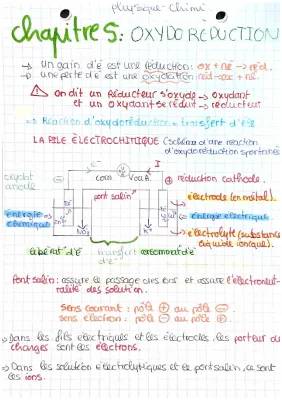 physique-Chimie
chapitre 5: OXYDORÉDUCTION
→ Un gain d'é est une réduction: ox + né → red.
→ une perte d'é est une oxydation: red → ox + né.
⚠ on dit un Réducteur s'oxyde → oxydant
et un oxydant se réduit → réducteur
⇒ Réaction d'oxydoréduction = transfert d'é
LA PILE ÉLECTROCHIMIQUE (schéma d'une réaction
d'oxydoréduction spontanée
e⁻ V I
oxydat° anode ⊖ com VouA ⊕ réduction cathode.
pont salin
électrode (en métal).
énergie chimique
énergie électrique
électrolyte (substance
liquide ionique).
libérat° d'é transfert d'é consommat° d'é
Pont salin: assure le passage des ions et assure l'électroneu-
tralité des solution.
sens courant: pôle ⊕ au pôle ⊖.
sens électron: pôle ⊖ au pôle ⊕
→ Dans les fils électriques et les électrodes, les porteur de
charges sont les électrons.
→ Dans les solution électrolytiques et le pont salin, ce sont
les ions.